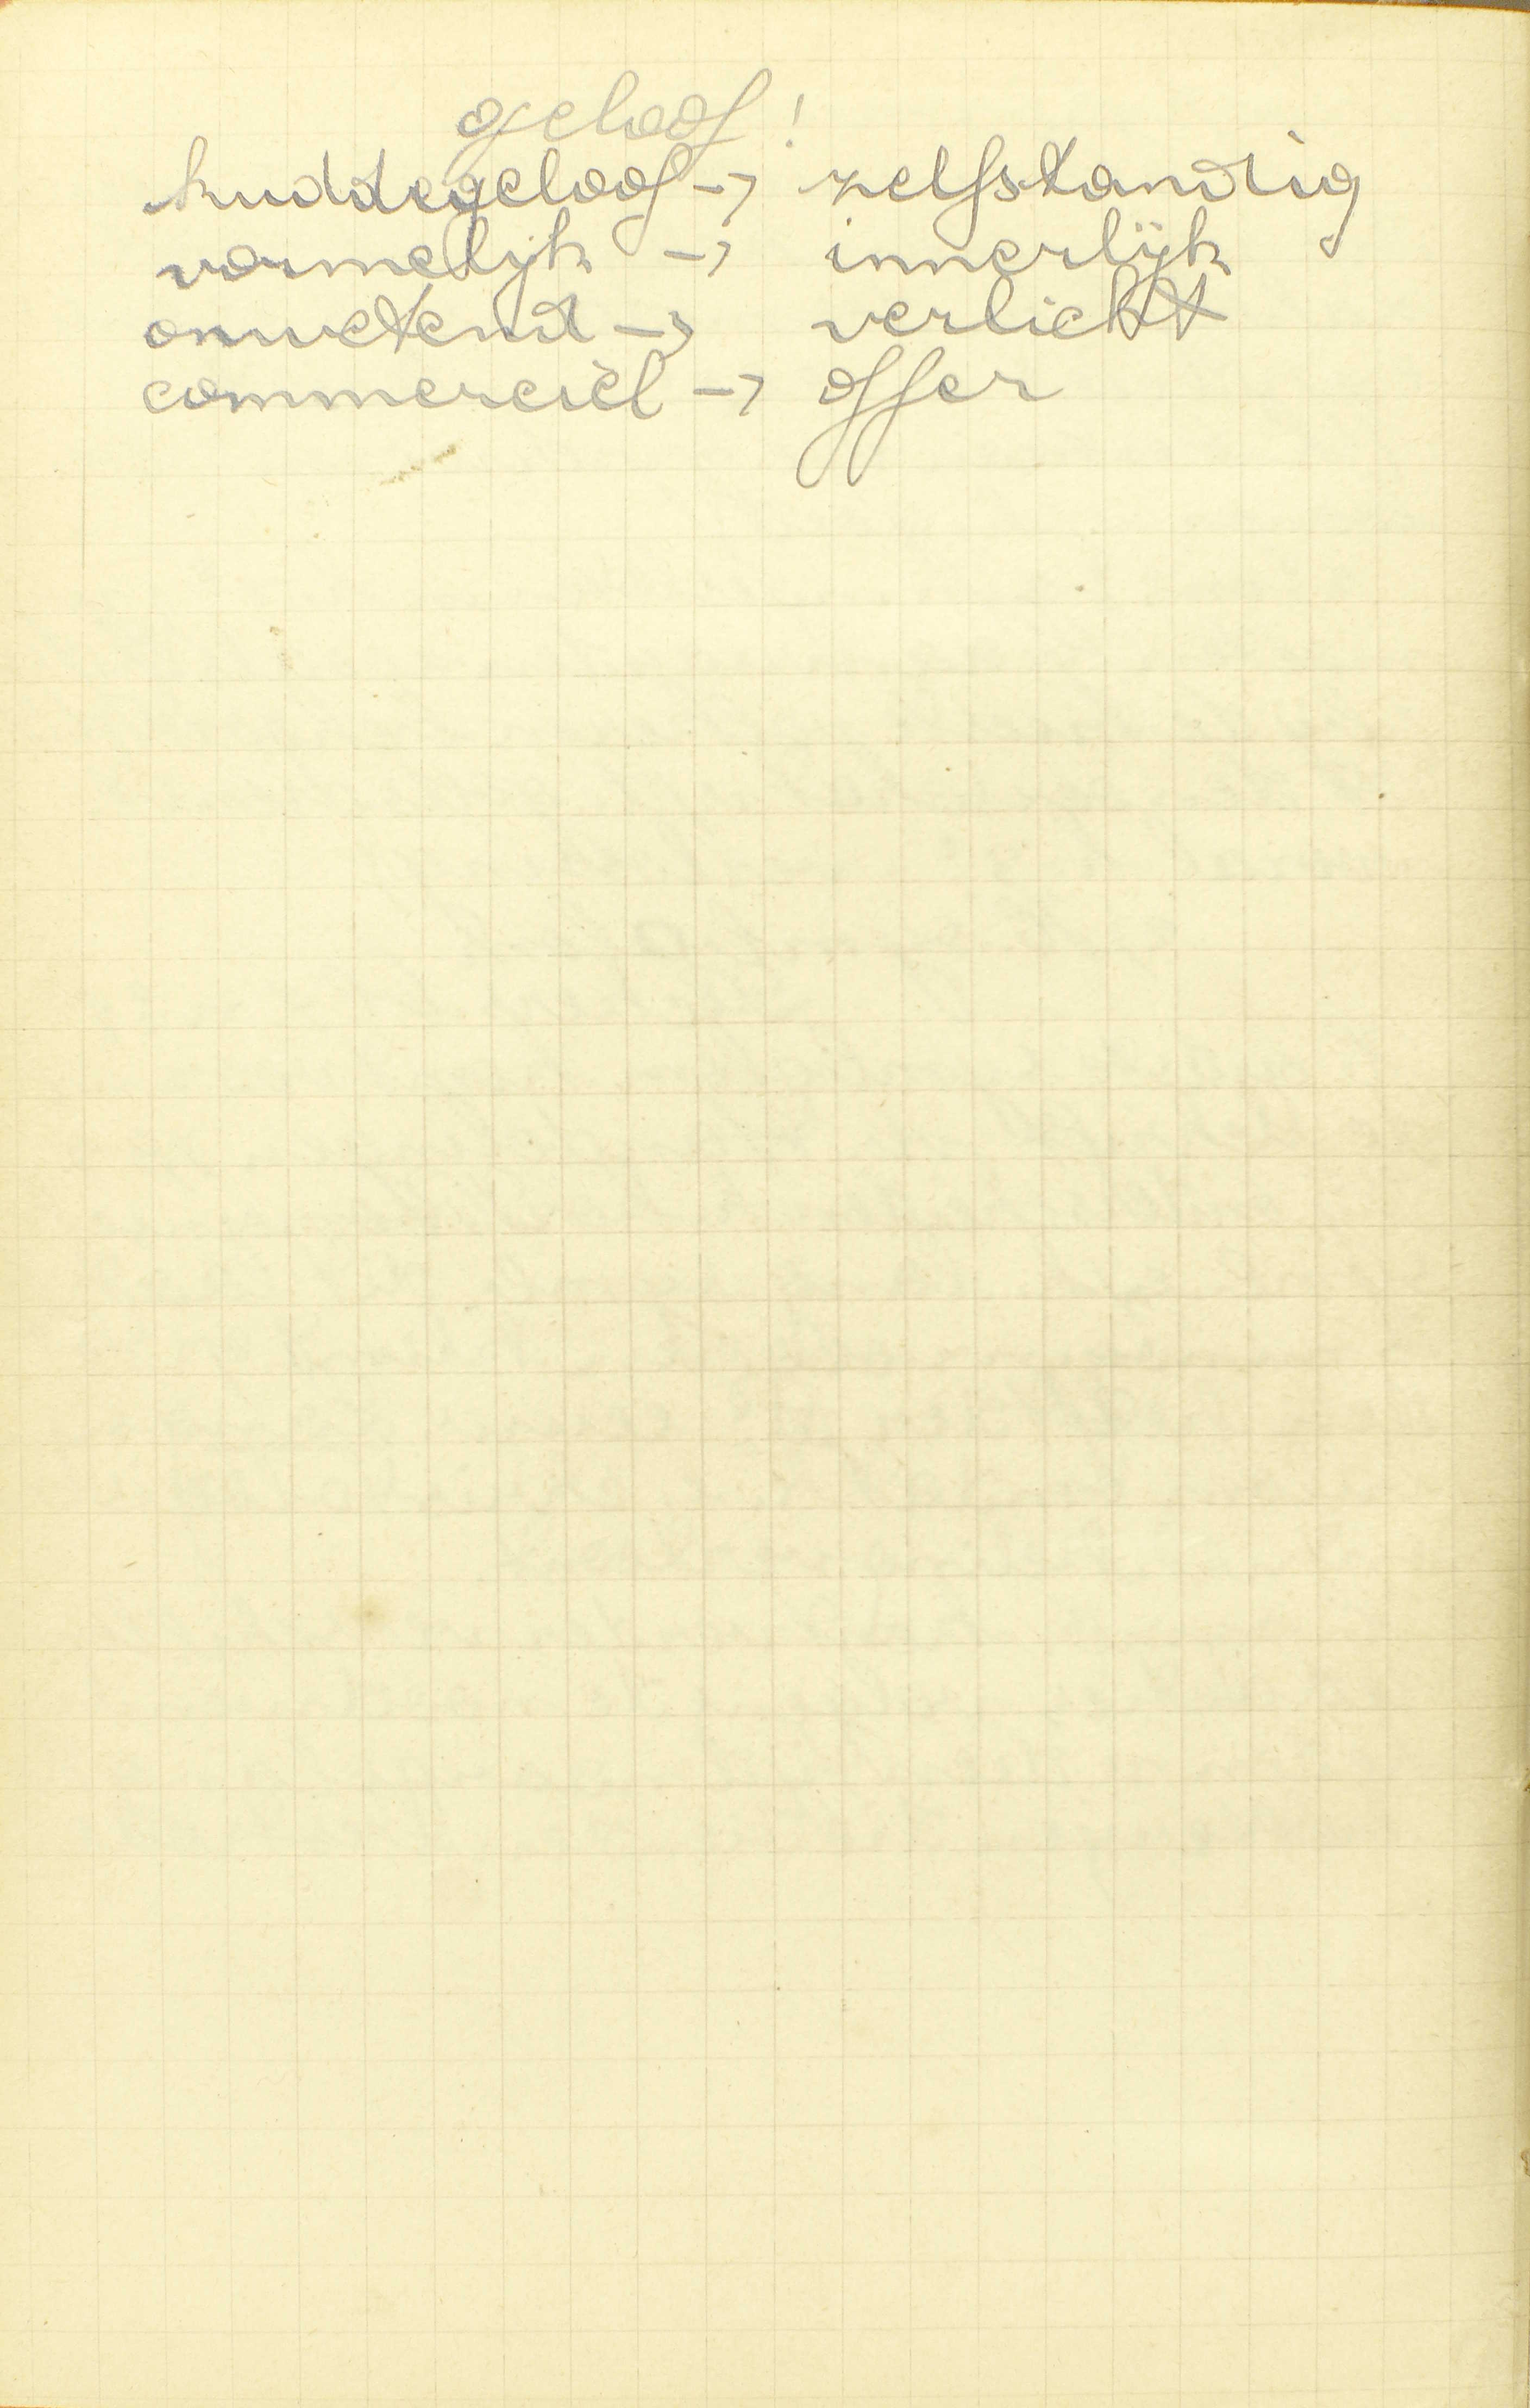 geloof!
kuddegeloof → zelfstandig
vormelijk → innerlijk
onwetend → verlicht
commerciël → offer